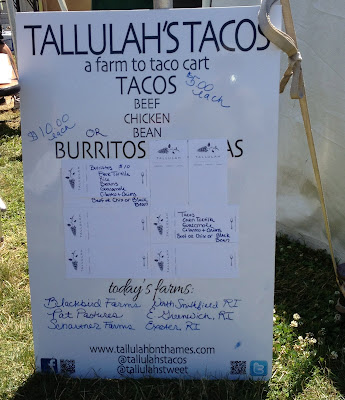 TALLULAH'S TACOS
a farm to taco cart
TACOS
$5.00 each
BEEF
CHICKEN
BEAN
$10.00 each
OR
BURRITOS AS
TALLULAH
Burritos $10
Flour Tortilla
Rice
Beans
Guacamole
Cilantro + Onions
Beef or Chix or Black
Bean
Tacos
Corn Tortilla
Guacamole
Cilantro + Onions
Beef or Chix or Black
Bean
today's farms:
Blackbird Farms Smithfield RI
Pat's Pastures E. Greenwich, RI
Farms Exeter RI
www.tallulahonthames.com
@tallulahstacos
@tallulahstweet